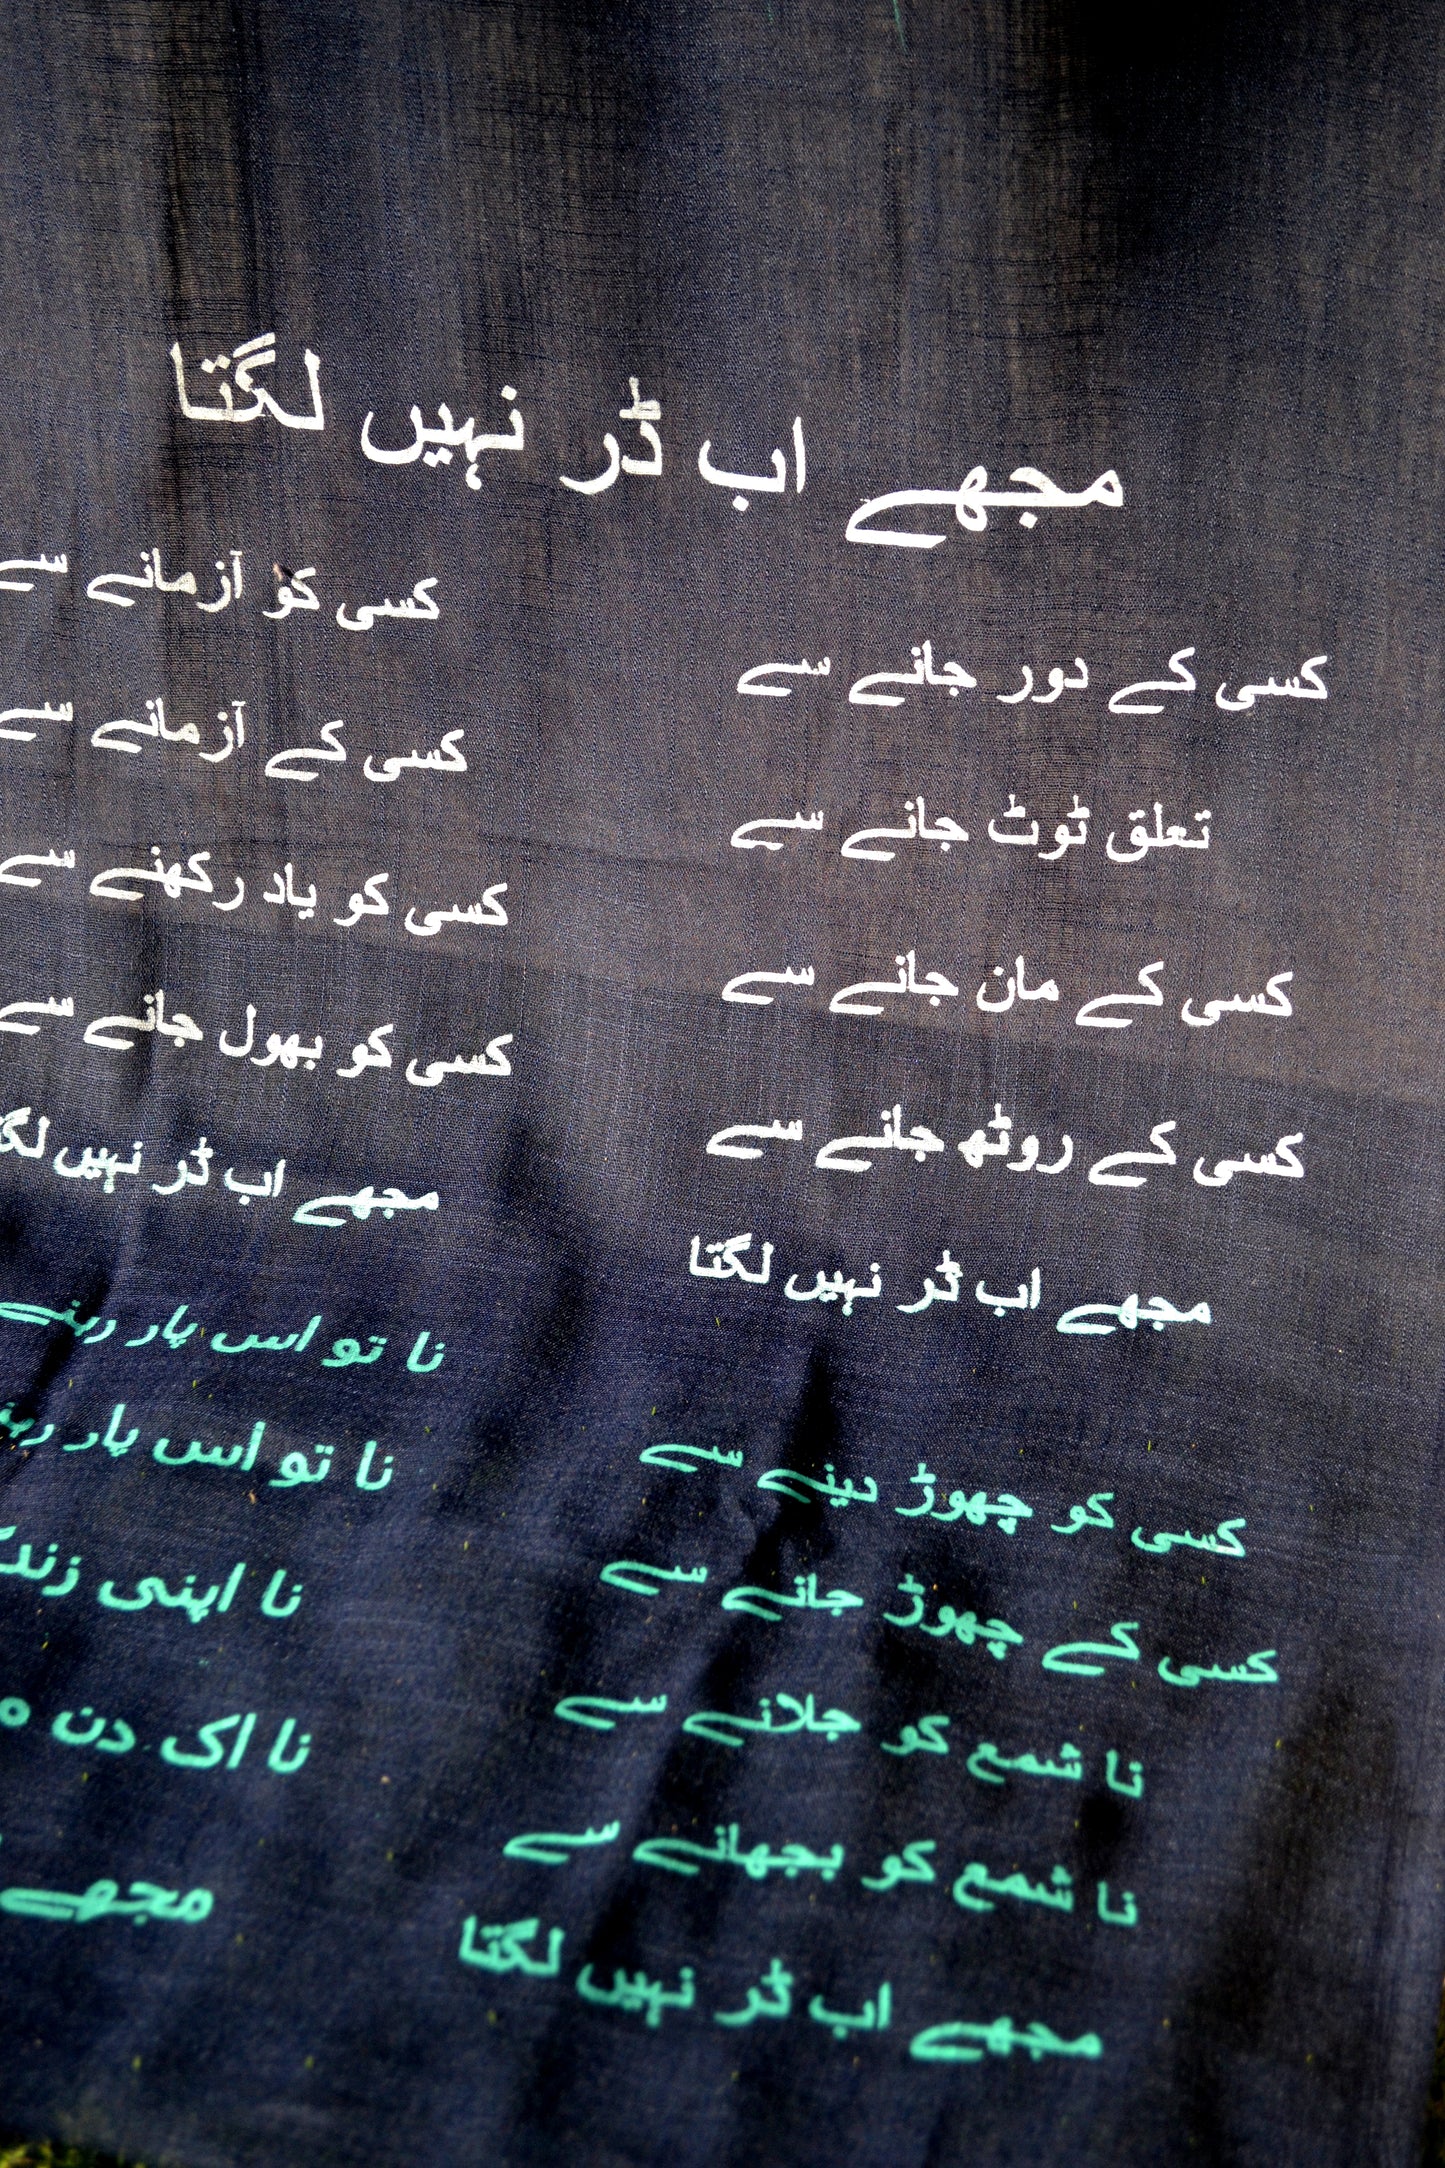 مجھے اب ڈر نہیں لگتا
کسی کے دور جانے سے
تعلق ٹوٹ جانے سے
کسی کے مان جانے سے
کسی کے روٹھ جانے سے
مجھے اب ڈر نہیں لگتا
کسی کو چھوڑ دینے سے
کسی کے چھوڑ جانے سے
نا شمع کو جلانے سے
نا شمع کو بجھانے سے
مجھے اب ڈر نہیں لگتا
کسی کو آزمانے سے
کسی کے آزمانے سے
کسی کو یاد رکھنے سے
کسی کو بھول جانے سے
مجھے اب ڈر نہیں
نا تو اس پار رہنے
نا تو اس پار
نا اپنی
نا اک دن
مجھے